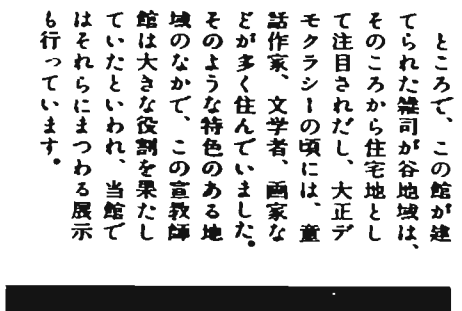 ところで、この館が建
てられた雑司が谷地域は、
そのころから住宅地とし
て注目されだし、大正デ
モクラシーの頃には、童
話作家、文学者、画家な
どが多く住んでいました。
そのような特色のある地
域のなかで、この宣教師
館は大きな役割を果たし
ていたといわれ、当館で
はそれらにまつわる展示
も行っています。